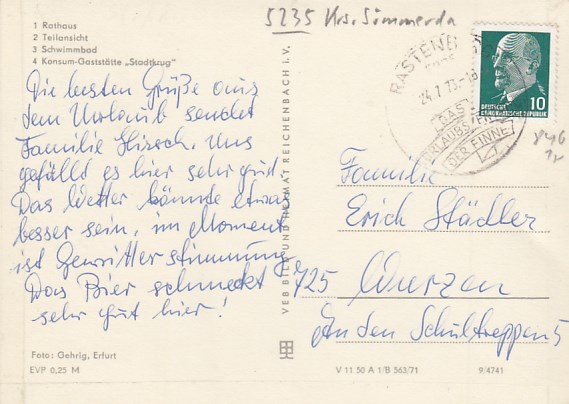 5235 Krs. Sömmerda
1 Rathaus
2 Teilansicht
3 Schwimmbad
4 Konsum-Gaststätte „Stadtkrug"
Die besten Grüße aus
dem Urlaub sendet
Familie Hirsch. Uns
gefällt es hier sehr gut
Das Wetter könnte etwas
besser sein, im Moment
ist Gewitterstimmung
Das Bier schmeckt
sehr gut hier!
Foto: Gehrig, Erfurt
EVP 0,25 M
VEB BILD UND HEIMAT REICHENBACH I. V.
RASTENB
24.7.73.-
DER FINNE
DEUTSCHE
DEMOKRATISCHE REPUBLIK
10
Familie
Erich Städler
725 Wurzen
An den Schultreppen 5
V 11 50 A 1/B 563/71
9/4741